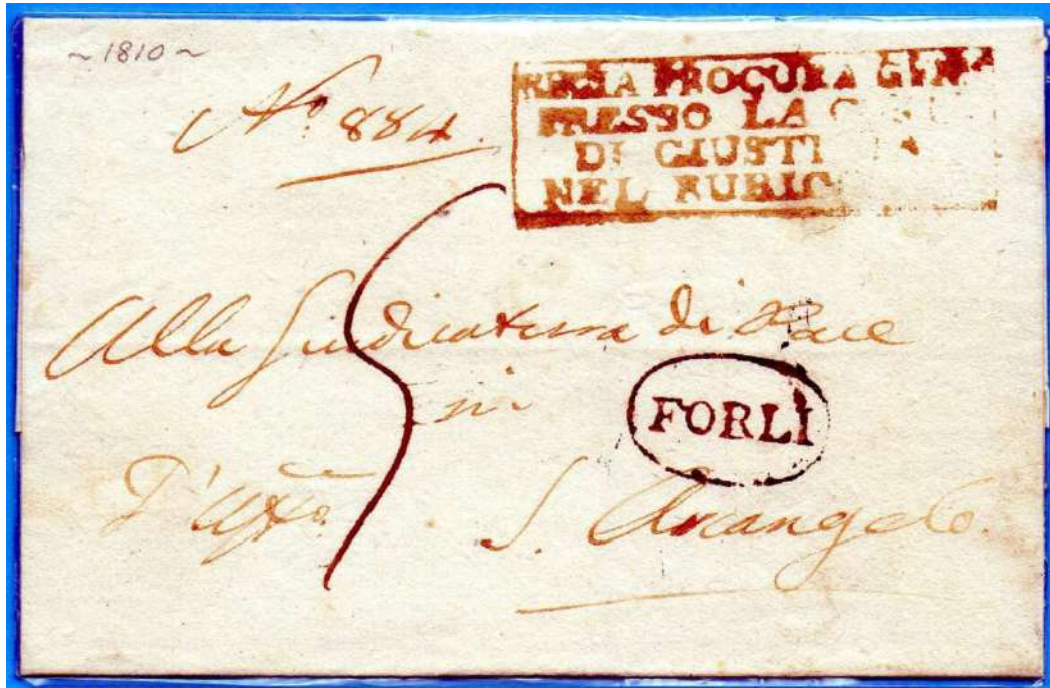 ~1810~
N.º 884.
REGIA PROCURA
PRESSO LA
DI GIUSTI A
NEL RUBIC
Alla Giudicatura di Pace
in
FORLÌ
D'Uffo.
S. Arcangelo.